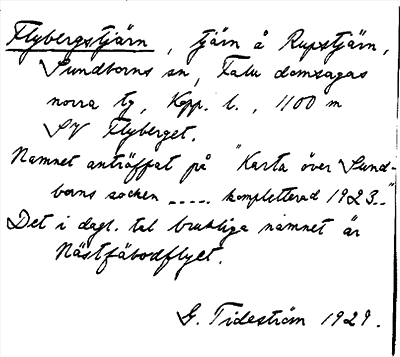 Flybergstjärn, tjärn å Rupstjärn,
Sundborns sn, Falu domsagas
norra tg, Kopp. l., 1100 m
SV Flyberget.
Namnet anträffat på "Karta över Sund-
borns socken ..... kompletterad 1923.."
Det i dagl. tal brukliga namnet är
Nästfäbodflyet.
G. Tideström 1929.